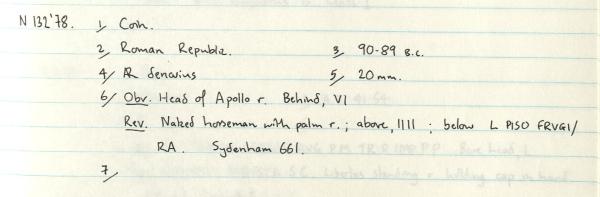 N 132'78. 1, Coin.
2, Roman Republic. 3, 90-89 B.C.
4/ AR denarius 5, 20 mm.
6/ Obv. Head of Apollo r. Behind, VI
Rev. Naked horseman with palm r.; above, IIII ; below L PISO FRVGI/
RA. Sydenham 661.
7/